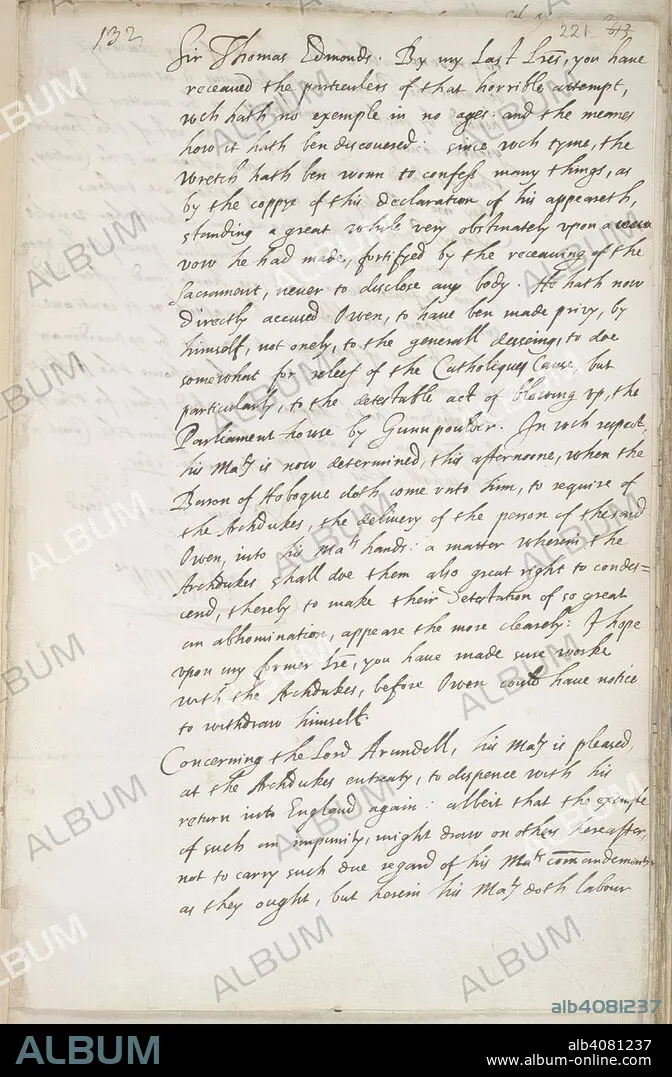 132
221
Sir Thomas Edmonds. By my Last Lres, you have
receaued the particulers of that horrible attempt,
wch hath no exemple in no ages: and the meanes
how it hath ben discouered: since wch tyme, the
wretch hath ben wonn to confess many things, as
by the coppye of this declaration of his appeareth,
standing a great while very obstinately vpon a
vow he had made, fortifyed by the receauing of the
Sacrament, neuer to disclose any body. He hath now
directly accused Owen, to have ben made privy, by
himself, not onely, to the generall desseing, to doe
somewhat for releef of the Catholiques Cause, but
particularly, to the detestable act of blowing vp, the
Parliament house by Gunnpoulder. In wch respect,
his Maty is now determined, this afternoone, when the
Baron of Hoboque doth come vnto him, to require of
the Archdukes, the delivery of the person of the said
Owen, into his Mats hands: a matter wherein the
Archdukes shall doe them also great right to condes=
cend, thereby to make their Detestation of so great
an abhomination, appeare the more clearely: I hope
vpon my former Lre, you have made sure worke
with the Archdukes, before Owen could have notice
to withdraw himself.
Concerning the Lord Arundell, his Maty is pleased,
at the Archdukes entreaty, to dispence with his
return into England again: albeit that the exemple
of such an impunity, might draw on others hereafter,
not to carry such due regard of his Mats comandements
as they ought, but herein his Maty doth labour
ALBUM
alb4081237
ALBUM
alb4081237
www.album-online.com